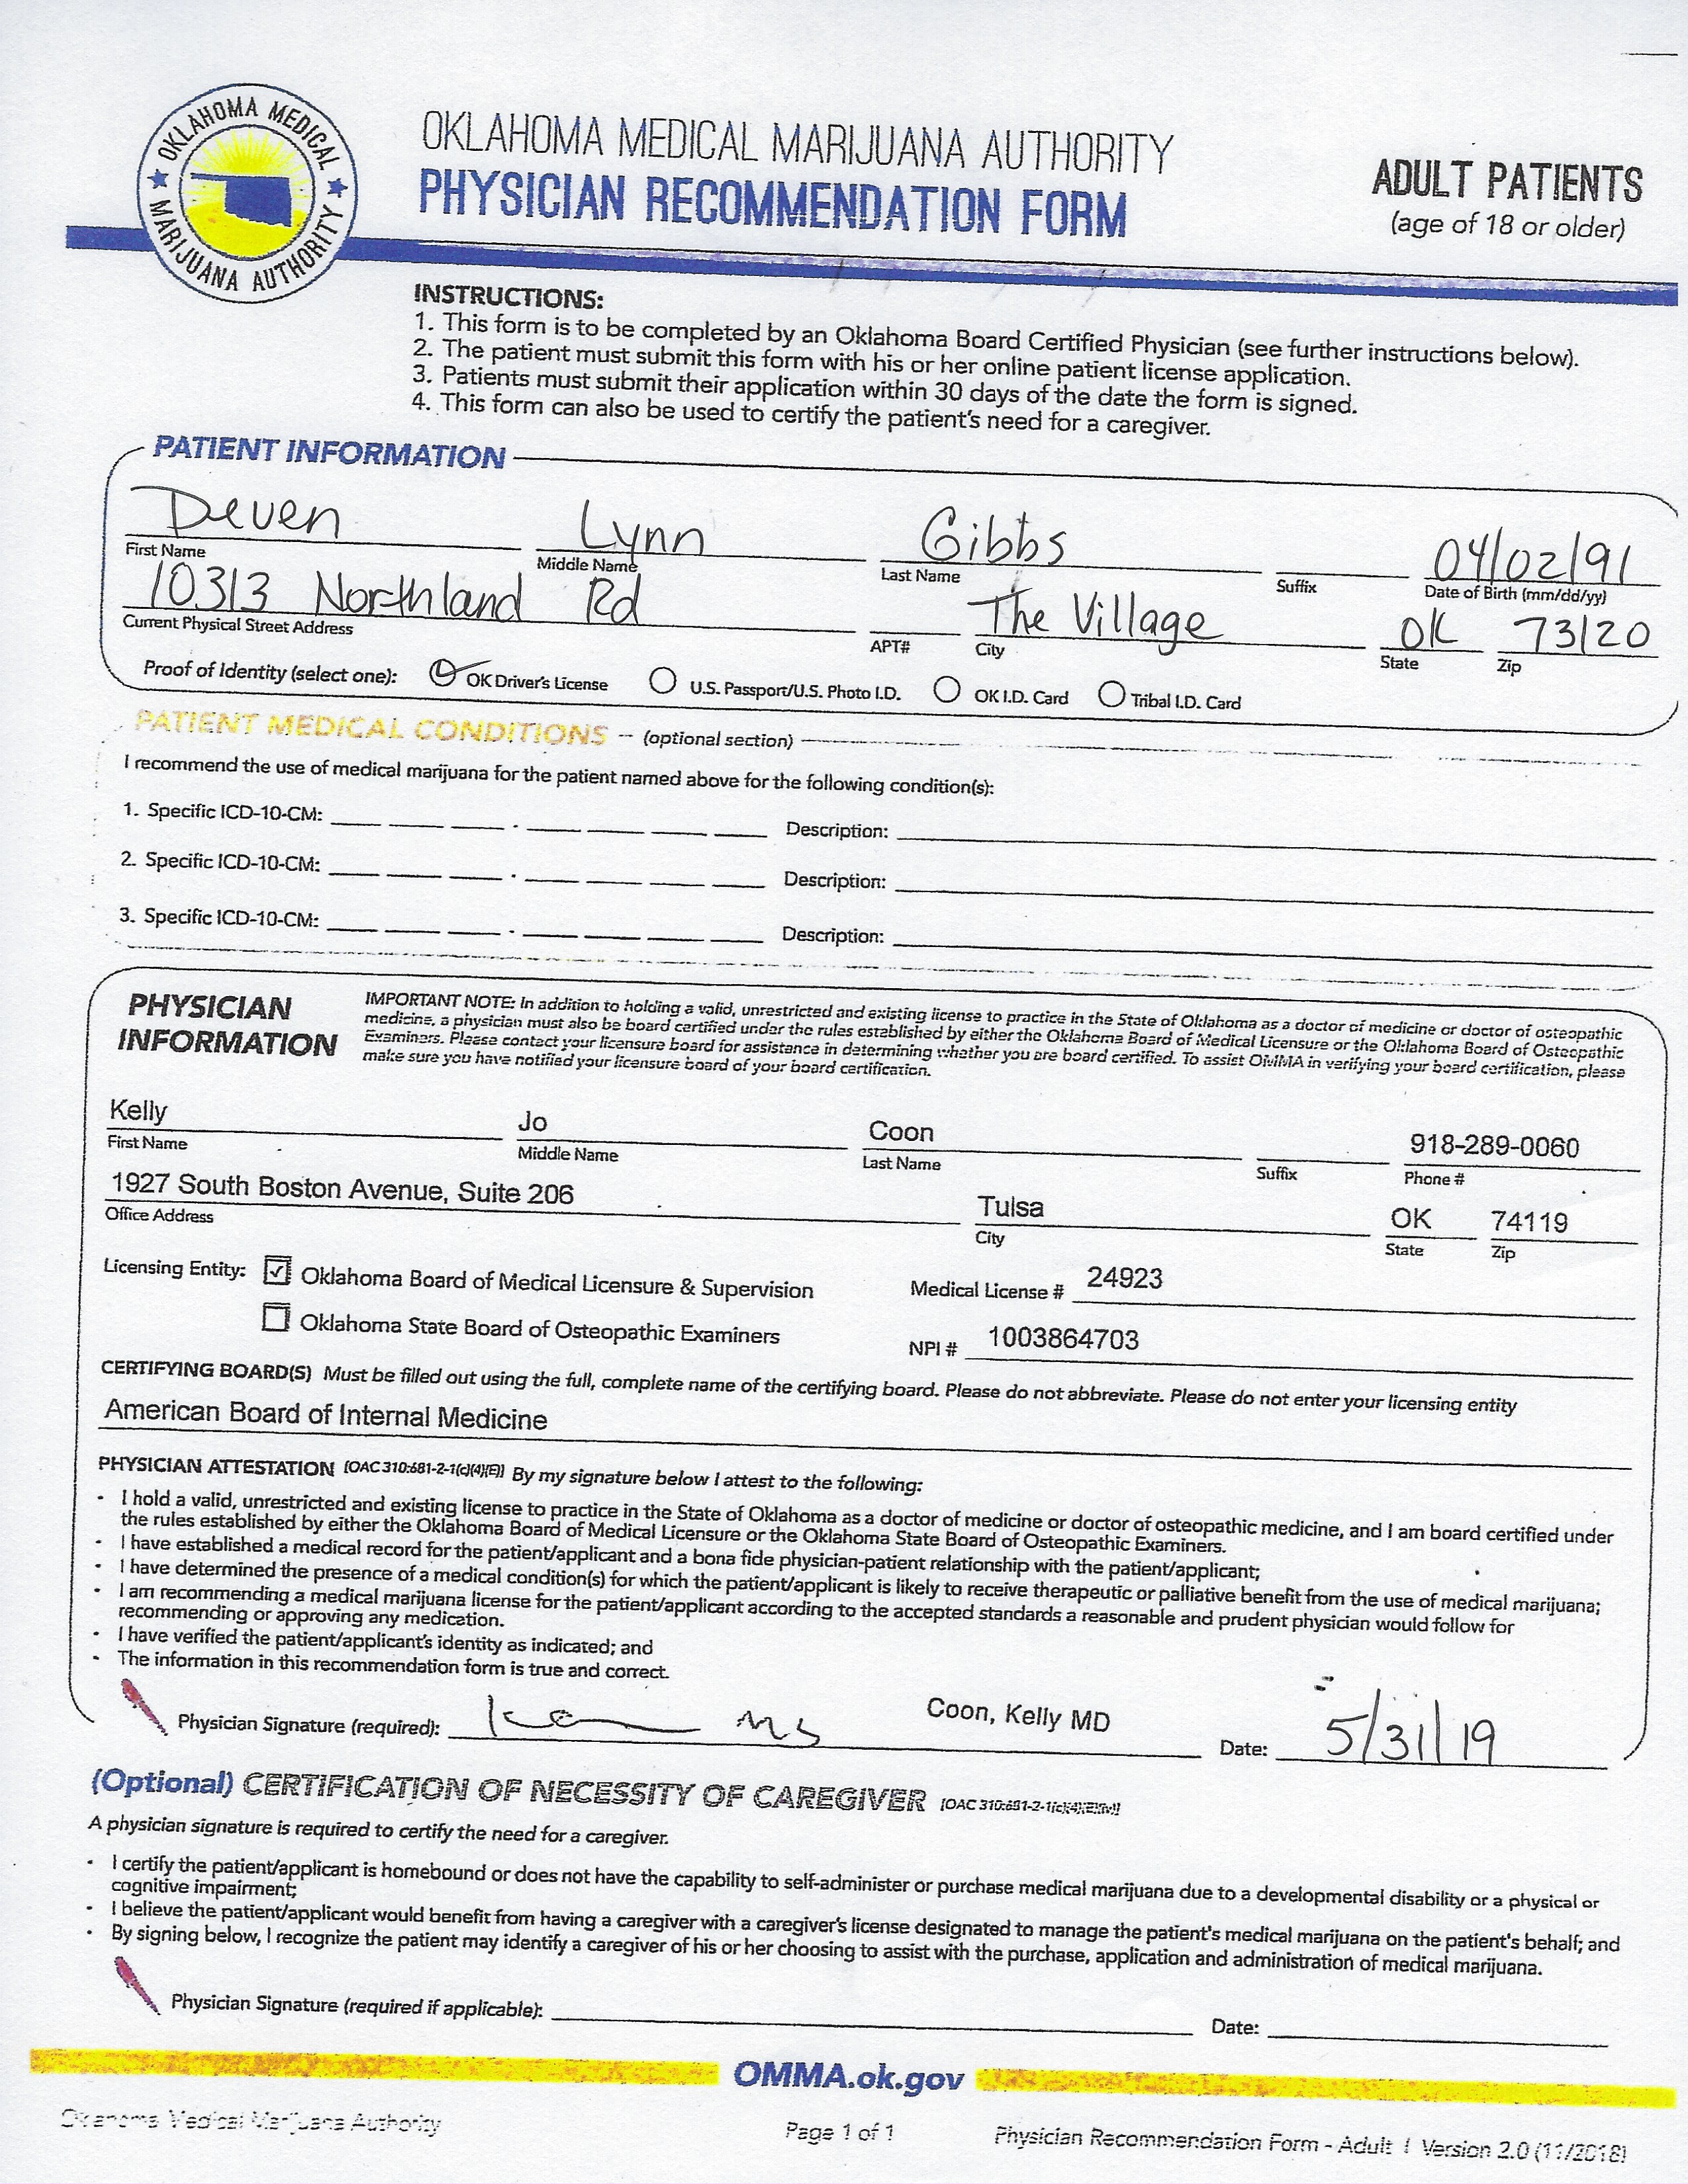 OKLAHOMA MEDICAL MARIJUANA AUTHORITY
OKLAHOMA MEDICAL MARIJUANA AUTHORITY
PHYSICIAN RECOMMENDATION FORM
ADULT PATIENTS
(age of 18 or older)
INSTRUCTIONS:
1. This form is to be completed by an Oklahoma Board Certified Physician (see further instructions below).
2. The patient must submit this form with his or her online patient license application.
3. Patients must submit their application within 30 days of the date the form is signed.
4. This form can also be used to certify the patient's need for a caregiver.
PATIENT INFORMATION
Deven Lynn Gibbs 04/02/91
First Name Middle Name Last Name Suffix Date of Birth (mm/dd/yy)
10313 Northland Rd The Village OK 73120
Current Physical Street Address APT# City State Zip
Proof of Identity (select one): OK Driver's License U.S. Passport/U.S. Photo I.D. OK I.D. Card Tribal I.D. Card
PATIENT MEDICAL CONDITIONS - (optional section)
I recommend the use of medical marijuana for the patient named above for the following condition(s):
1. Specific ICD-10-CM: Description:
2. Specific ICD-10-CM: Description:
3. Specific ICD-10-CM: Description:
PHYSICIAN INFORMATION
IMPORTANT NOTE: In addition to holding a valid, unrestricted and existing license to practice in the State of Oklahoma as a doctor of medicine or doctor of osteopathic
medicine, a physician must also be board certified under the rules established by either the Oklahoma Board of Medical Licensure or the Oklahoma Board of Osteopathic
Examiners. Please contact your licensure board for assistance in determining whether you are board certified. To assist OMMA in verifying your board certification, please
make sure you have notified your licensure board of your board certification.
Kelly Jo Coon 918-289-0060
First Name Middle Name Last Name Suffix Phone #
1927 South Boston Avenue, Suite 206 Tulsa OK 74119
Office Address City State Zip
Licensing Entity: Oklahoma Board of Medical Licensure & Supervision Medical License # 24923
Oklahoma State Board of Osteopathic Examiners NPI # 1003864703
CERTIFYING BOARD(S) Must be filled out using the full, complete name of the certifying board. Please do not abbreviate. Please do not enter your licensing entity
American Board of Internal Medicine
PHYSICIAN ATTESTATION [OAC 310:681-2-1(c)(4)(E)] By my signature below I attest to the following:
• I hold a valid, unrestricted and existing license to practice in the State of Oklahoma as a doctor of medicine or doctor of osteopathic medicine, and I am board certified under
the rules established by either the Oklahoma Board of Medical Licensure or the Oklahoma State Board of Osteopathic Examiners.
• I have established a medical record for the patient/applicant and a bona fide physician-patient relationship with the patient/applicant;
• I have determined the presence of a medical condition(s) for which the patient/applicant is likely to receive therapeutic or palliative benefit from the use of medical marijuana;
• I am recommending a medical marijuana license for the patient/applicant according to the accepted standards a reasonable and prudent physician would follow for
recommending or approving any medication.
• I have verified the patient/applicant's identity as indicated; and
• The information in this recommendation form is true and correct.
Physician Signature (required): Coon, Kelly MD Date: 5/31/19
(Optional) CERTIFICATION OF NECESSITY OF CAREGIVER
A physician signature is required to certify the need for a caregiver.
• I certify the patient/applicant is homebound or does not have the capability to self-administer or purchase medical marijuana due to a developmental disability or a physical or
cognitive impairment;
• I believe the patient/applicant would benefit from having a caregiver with a caregiver's license designated to manage the patient's medical marijuana on the patient's behalf; and
• By signing below, I recognize the patient may identify a caregiver of his or her choosing to assist with the purchase, application and administration of medical marijuana.
Physician Signature (required if applicable): Date:
OMMA.ok.gov
Oklahoma Medical Marijuana Authority Page 1 of 1 Physician Recommendation Form - Adult | Version 2.0 (11/2018)